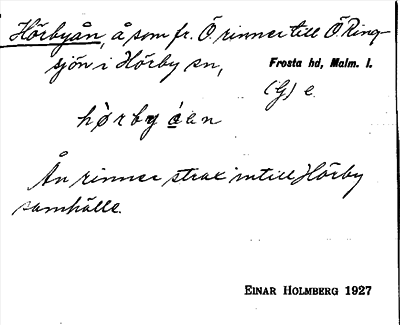 Hörbyån, å som fr. Ö. rinner till Ö Ring-
sjön i Hörby sn,
Frosta hd, Malm. l.
(G) e.
hörby åen
Ån rinner strax intill Hörby
samhälle.
EINAR HOLMBERG 1927